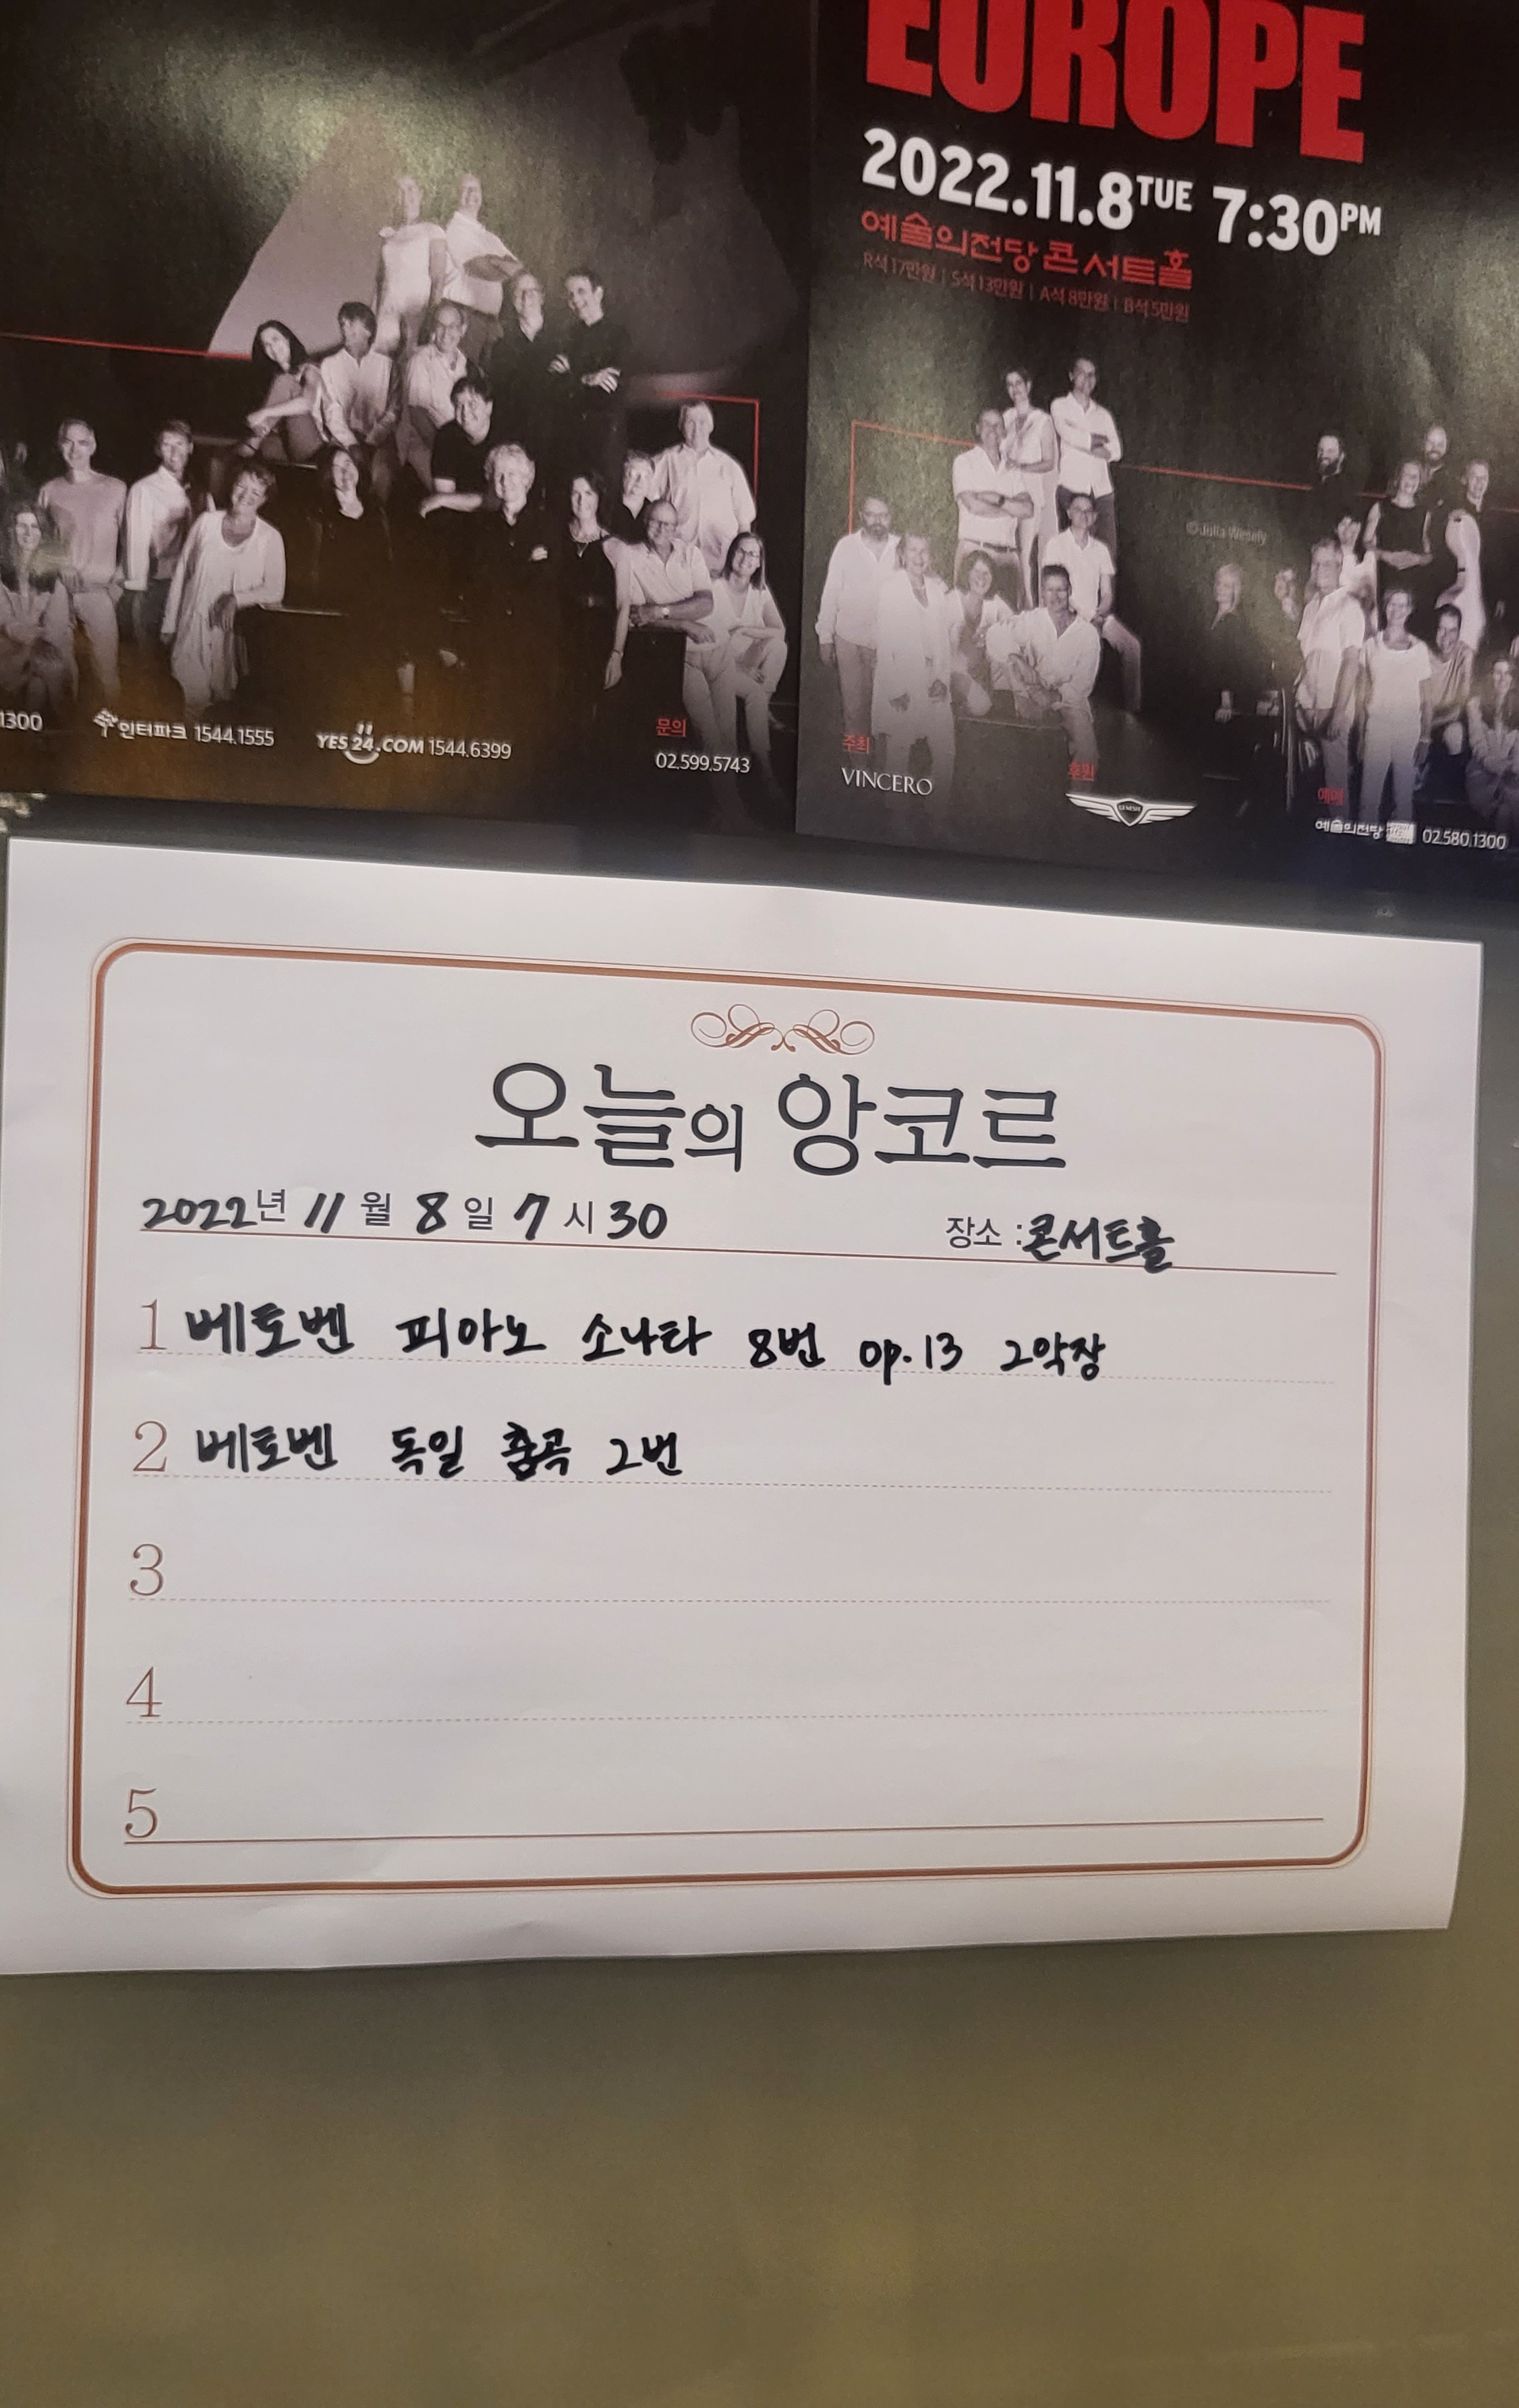 EUROPE
2022.11.8 TUE 7:30 PM
예술의전당 콘서트홀
R석 17만원 | S석 13만원 | A석 8만원 | B석 5만원
©Julia Wesely
1300 인터파크 1544.1555 YES24.COM 1544.6399
문의
02.599.5743
주최
VINCERO
후원
GENESIS
예매
예술의전당 02.580.1300
오늘의 앙코르
2022년 11월 8일 7시 30 장소 : 콘서트홀
1 베토벤 피아노 소나타 8번 op.13 2악장
2 베토벤 독일 춤곡 2번
3
4
5